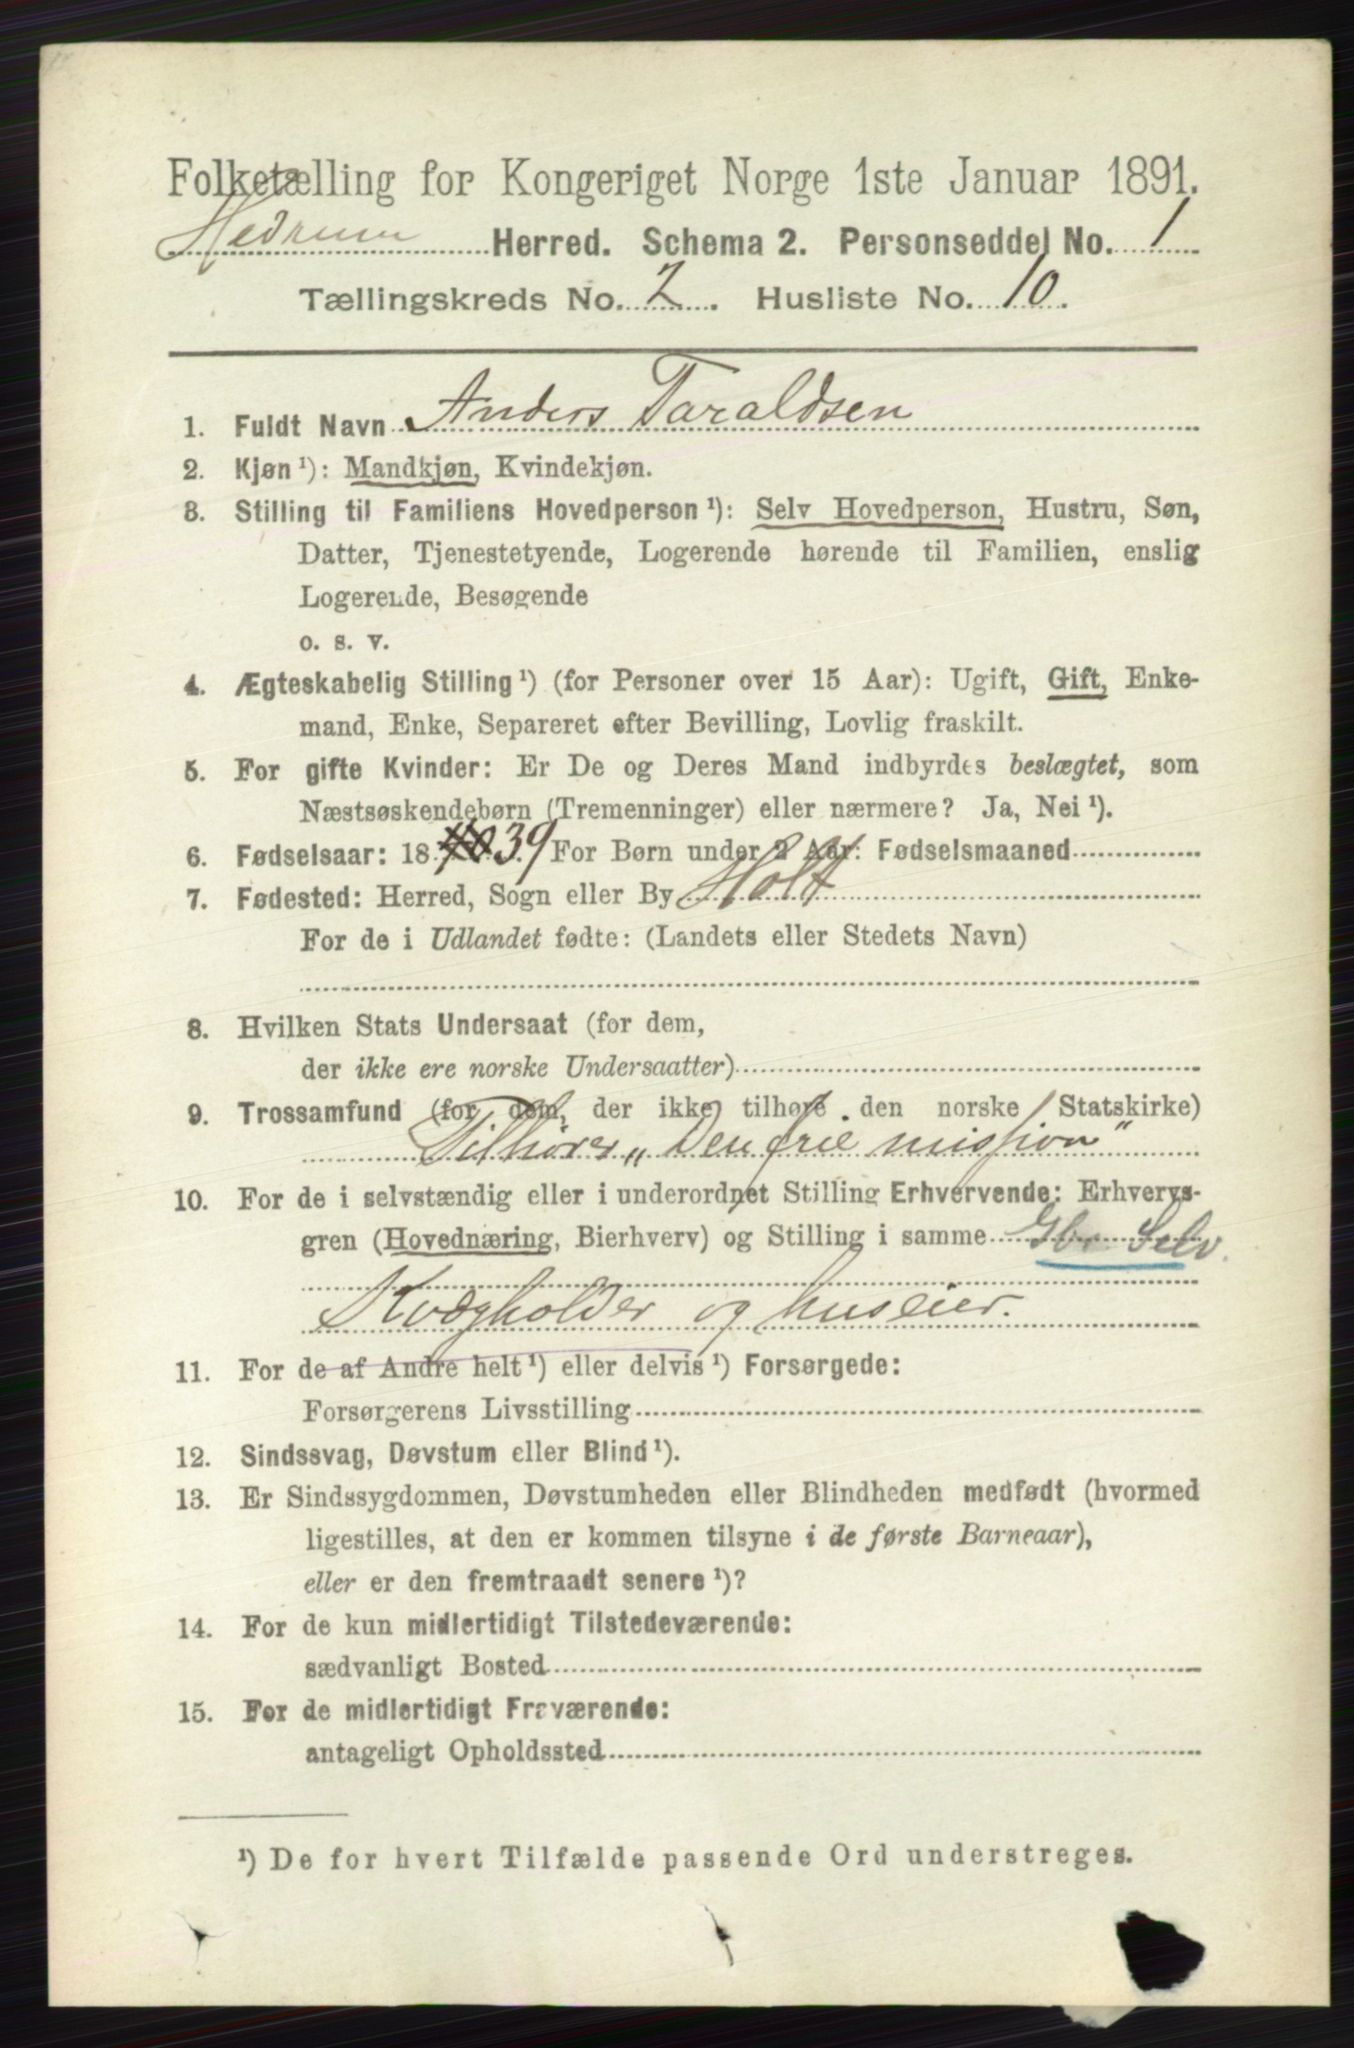 Folketælling for Kongeriget Norge 1ste Januar 1891.
Hedrum Herred. Schema 2. Personseddel No. 1
Tællingskreds No. 2. Husliste No. 10.
1. Fuldt Navn Anders Taraldsen
2. Kjøn ¹): Mandkjøn, Kvindekjøn.
3. Stilling til Familiens Hovedperson ¹): Selv Hovedperson, Hustru, Søn,
Datter, Tjenestetyende, Logerende hørende til Familien, enslig
Logerende, Besøgende
o. s. v.
4. Ægteskabelig Stilling ¹) (for Personer over 15 Aar): Ugift, Gift, Enke-
mand, Enke, Separeret efter Bevilling, Lovlig fraskilt.
5. For gifte Kvinder: Er De og Deres Mand indbyrdes beslægtet, som
Næstsøskendebørn (Tremenninger) eller nærmere? Ja, Nei ¹).
6. Fødselsaar: 18 40 39 For Børn under 2 Aar: Fødselsmaaned
7. Fødested: Herred, Sogn eller By Holt
For de i Udlandet fødte: (Landets eller Stedets Navn)
8. Hvilken Stats Undersaat (for dem,
der ikke ere norske Undersaatter)
9. Trossamfund (for dem, der ikke tilhøre den norske Statskirke)
Tilhører „Den frie mission"
10. For de i selvstændig eller i underordnet Stilling Erhvervende: Erhvervs-
gren (Hovednæring, Bierhverv) og Stilling i samme Gbr Selv.
Kvægholder og huseier.
11. For de af Andre helt ¹) eller delvis ¹) Forsørgede:
Forsørgerens Livsstilling
12. Sindssvag, Døvstum eller Blind ¹).
13. Er Sindssygdommen, Døvstumheden eller Blindheden medfødt (hvormed
ligestilles, at den er kommen tilsyne i de første Barneaar),
eller er den fremtraadt senere ¹)?
14. For de kun midlertidigt Tilstedeværende:
sædvanligt Bosted
15. For de midlertidigt Fraværende:
antageligt Opholdssted
¹) De for hvert Tilfælde passende Ord understreges.